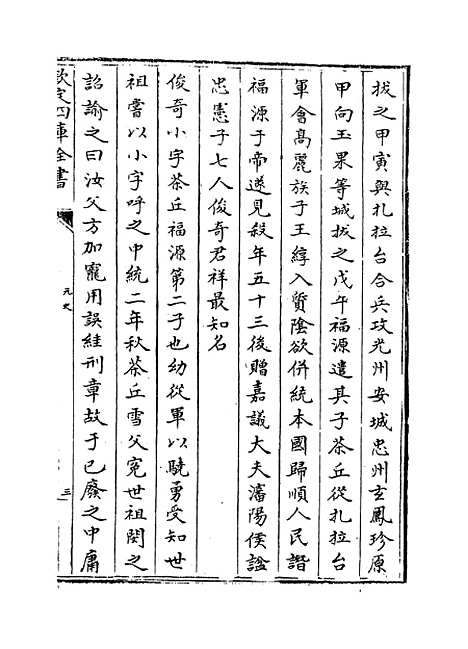 拔之甲寅與扎拉台合兵攻光州安城忠州玄鳳珍原
甲向玉果等城拔之戊午福源遣其子茶丘從扎拉台
軍會高麗族子王綧入質陰欲併統本國歸順人民譖
福源于帝遂見殺年五十三後贈嘉議大夫瀋陽侯諡
忠憲子七人俊奇君祥最知名
俊奇小字茶丘福源第二子也幼從軍以驍勇受知世
祖嘗以小字呼之中統二年秋茶丘雪父寃世祖閔之
詔諭之曰汝父方加寵用誤絓刑章故于已廢之中庸
欽定四庫全書
元史
三